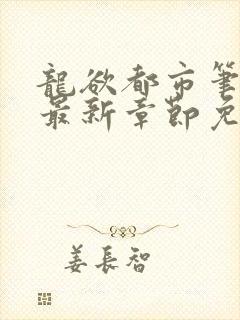 龍欲都市筆
最新章節免
姜長智